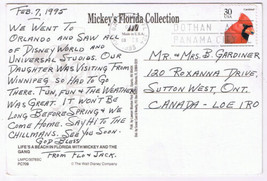 FEB. 7, 1995
Mickey's Florida Collection
WE WENT TO
ORLANDO AND SAW ALL
OF DISNEY WORLD AND
UNIVERSAL STUDIOS. OUR
DAUGHTER WAS VISITING FROM
WINNIPEG. SO HAD TO GO
THERE. FUN, FUN & THE WEATHER
WAS GREAT. IT WON'T BE
LONG BEFORE SPRING & WE
COME HOME. SAY HI TO THE
CHILLMANS. SEE YOU SOON.
GOD BLESS
FROM FLO & JACK.
LIFE'S A BEACH IN FLORIDA WITH MICKEY AND THE
GANG
PC768
© The Walt Disney Company
30
USA
DOTHAN
PANAMA
MR. & MRS. B. GARDINER
120 ROXANNA DRIVE,
SUTTON WEST, ONT.
CANADA - LOE 1RO